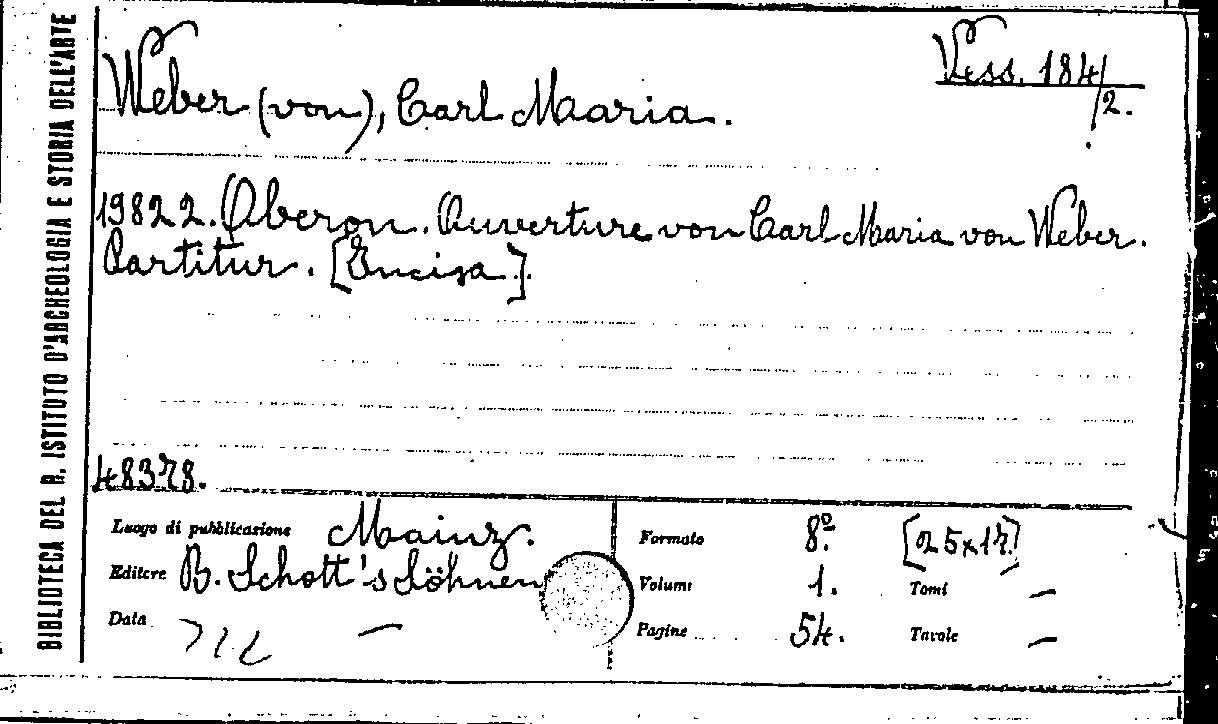 BIBLIOTECA DEL R. ISTITUTO D'ARCHEOLOGIA E STORIA DELL'ARTE
Vess. 184/2.
Weber (von), Carl Maria.
19822. Oberon. Ouverture von Carl Maria von Weber.
Partitur. [Incisa].
48378.
Luogo di pubblicazione Mainz.
Editore B. Schott's Söhnen
Data —
Formato 8º. [25x17]
Volumi 1. Tomi —
Pagine 54. Tavole —